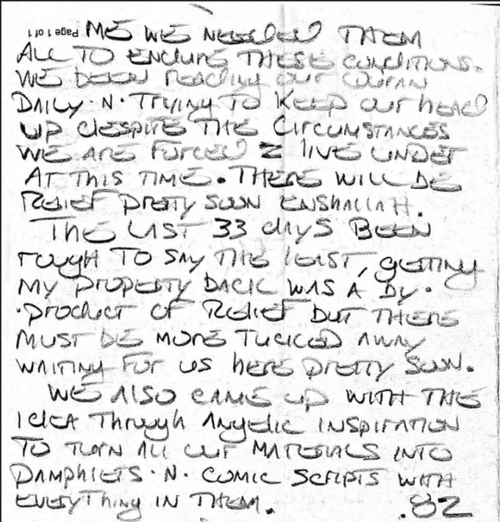 Page 1 of 1
ME WE NEEDED THEM
ALL TO ENDURE THESE CONDITIONS.
WE BEEN READING OUR QURAN
DAILY · N · TRYING TO KEEP OUR HEAD
UP DESPITE THE CIRCUMSTANCES
WE ARE FORCED 2 LIVE UNDER
AT THIS TIME. THERE WILL BE
RELIEF PRETTY SOON ENSHALLAH.
THE LAST 33 dAYS BEEN
rough TO SAY THE LEAST, getting
MY PROPERTY BACK WAS A By-
-product OF RELIEF BUT THERE
MUST BE MORE TUCKED AWAY
WAITING FOR US HERE PRETTY SOON.
WE ALSO CAME UP WITH THE
IDEA Through Angelic INSPIRATION
TO TURN All OUR MATERIALS INTO
PAMPHLETS · N · COMIC SCRIPTS WITH
EVERYThing IN THEM. .82